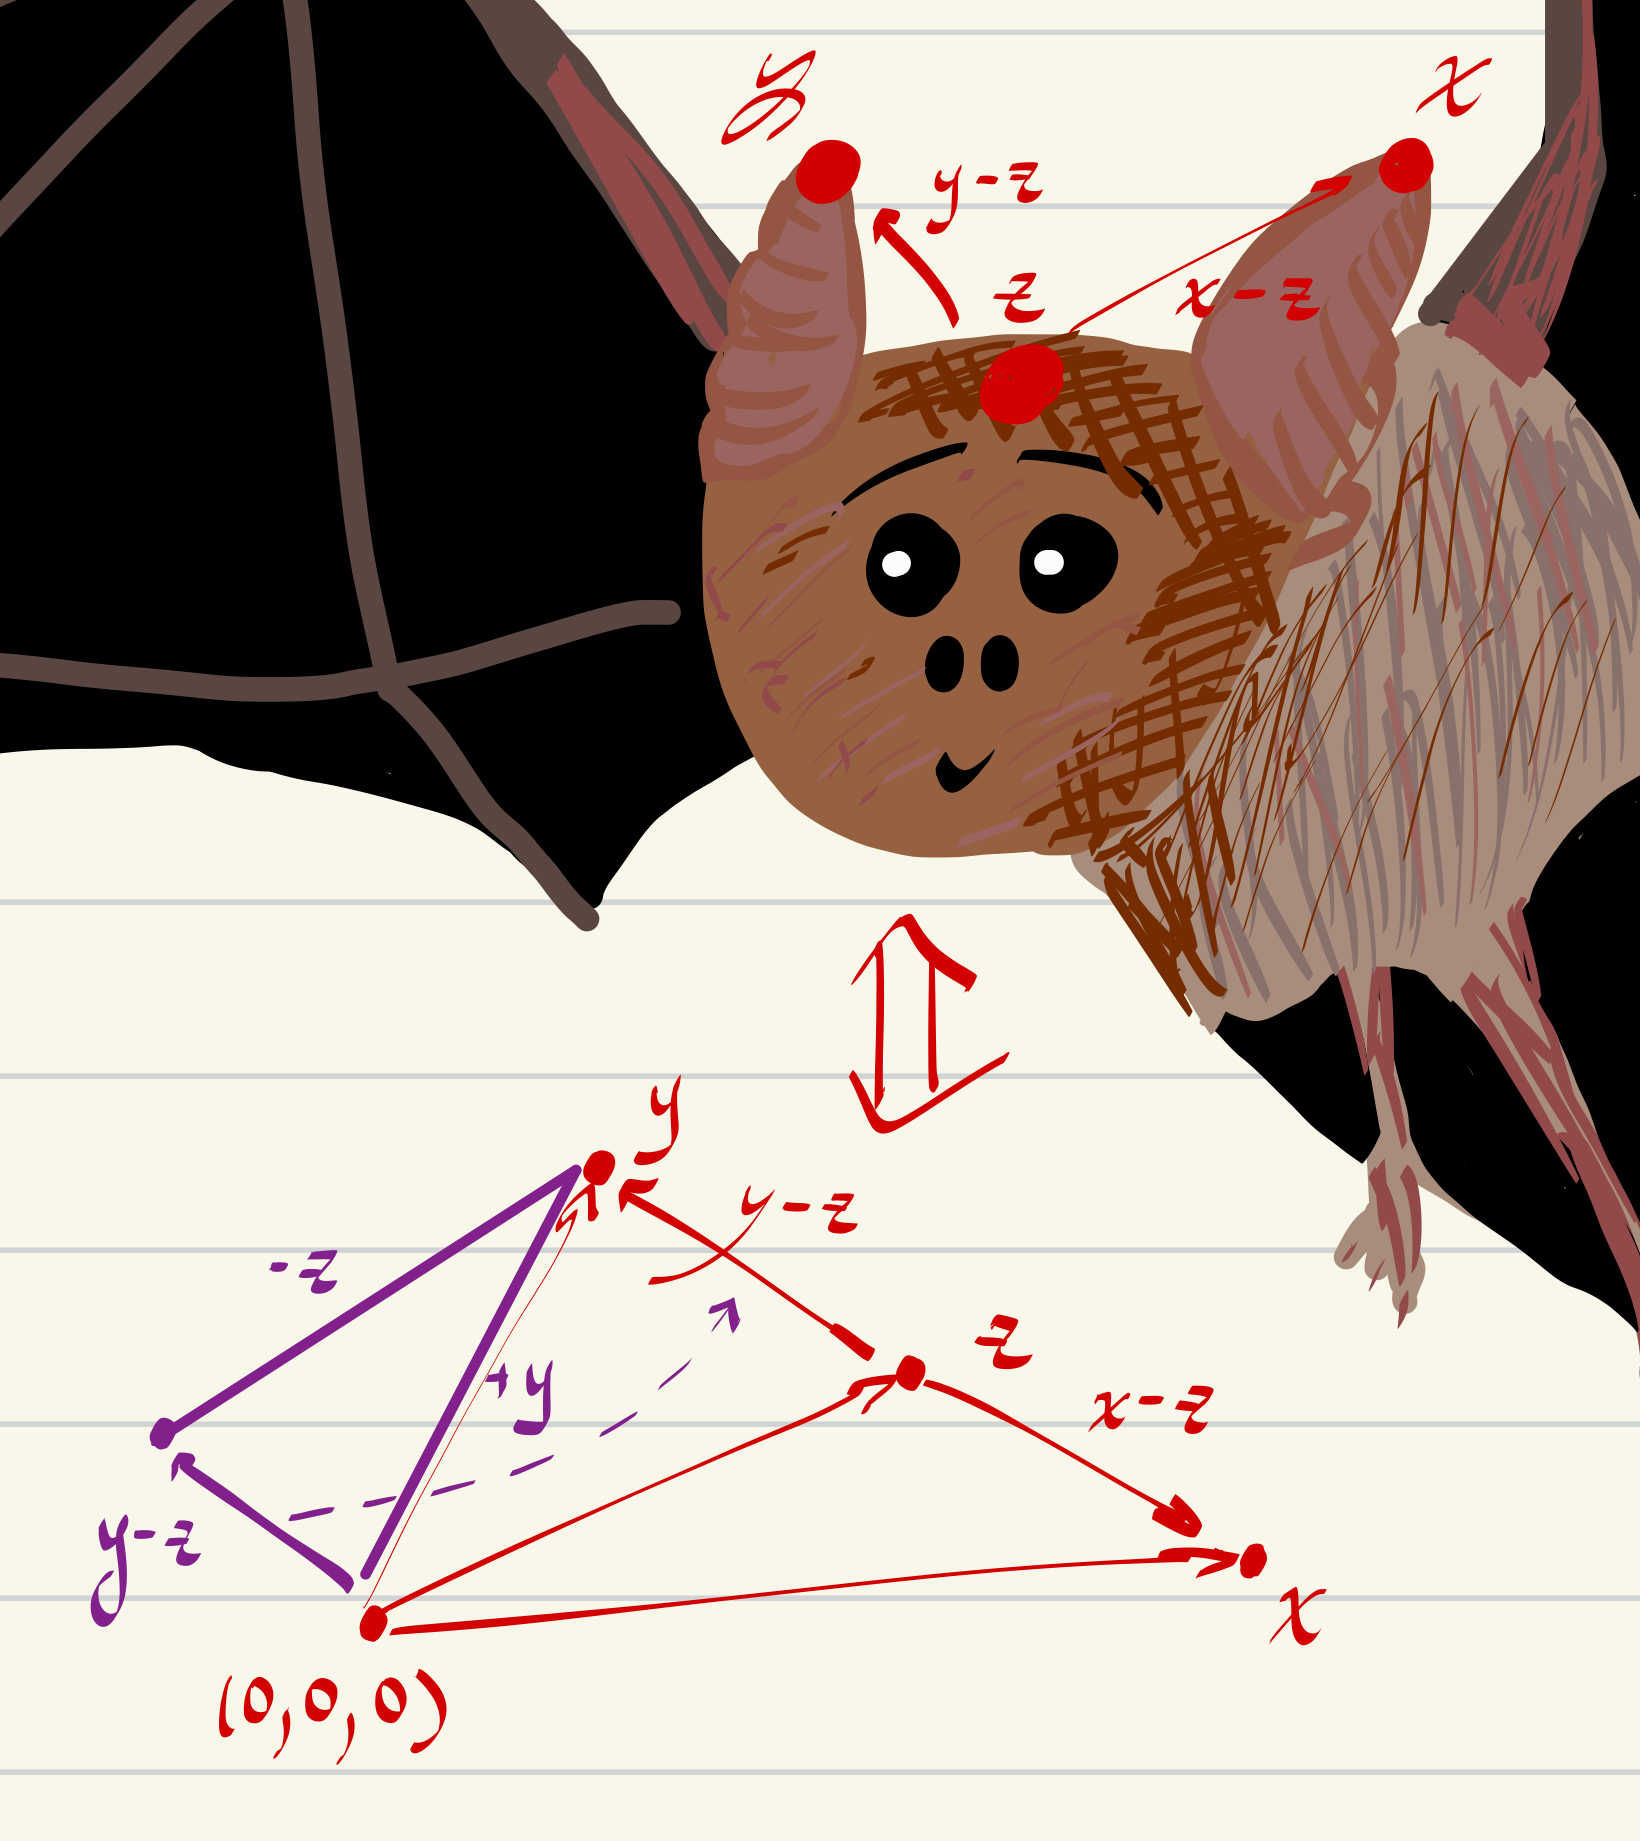 y
x
y-z
z
x-z
y
y-z
-z
z
+y
x-z
y-z
x
(0,0,0)